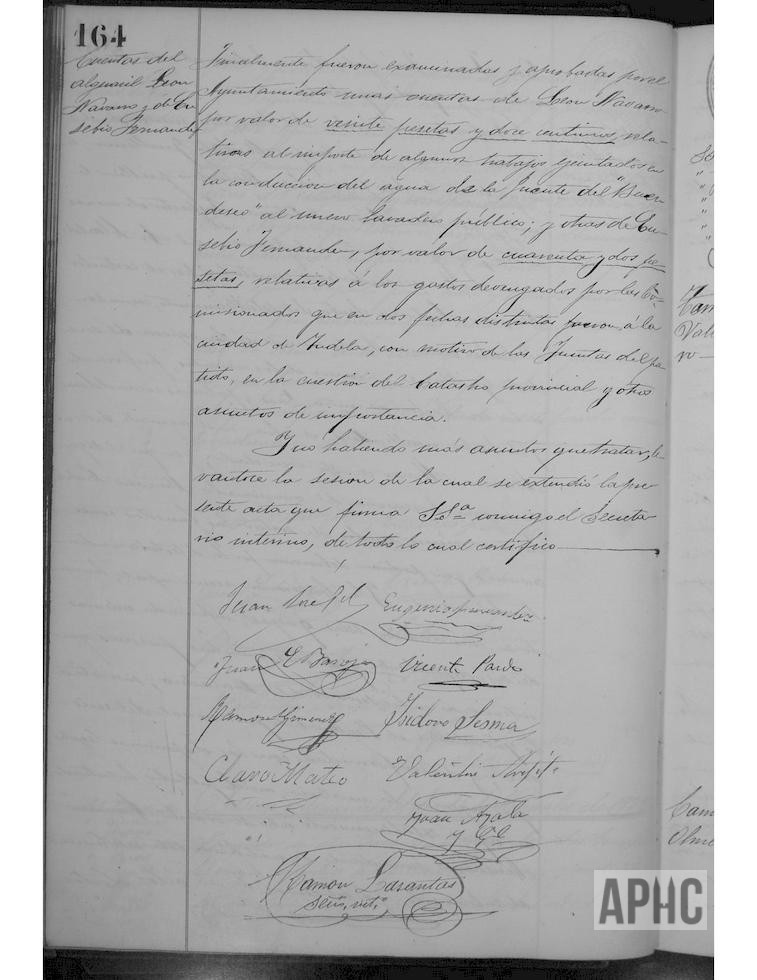 164
Cuentas del
alguacil Leon
Navarro y de Eu
sebio Fernandez
Finalmente fueron examinadas y aprobadas por el
Ayuntamiento unas cuentas de Leon Navarro
por valor de veinte pesetas y doce centimos, rela-
tivas al importe de algunos trabajos ejecutados en
la conduccion del agua de la fuente del "Buen
deseo" al nuevo lavadero público; y otras de Eu-
sebio Fernandez, por valor de cuarenta y dos pe-
setas, relativas á los gastos devengados por los Co-
misionados que en dos fechas distintas fueron á la
ciudad de Tudela, con motivo de las Juntas del par
tido, en la cuestión del Catastro provincial y otros
asuntos de importancia.
Y no habiendo más asuntos que tratar, le-
vantose la sesion de la cual se extendió la pre
sente acta que firma S. Sª conmigo el Secreta-
rio interino, de todo lo cual certifico
Juan José Gil
Eugenio Fernandez
Juan
Vicente Pardo
Ramon Gimenez
Isidoro Sesma
Claro Mateo
Valentin
Juan Ayala
y Gil
Ramon Lasantas
Srio. int.
Cam
Olme
APHC